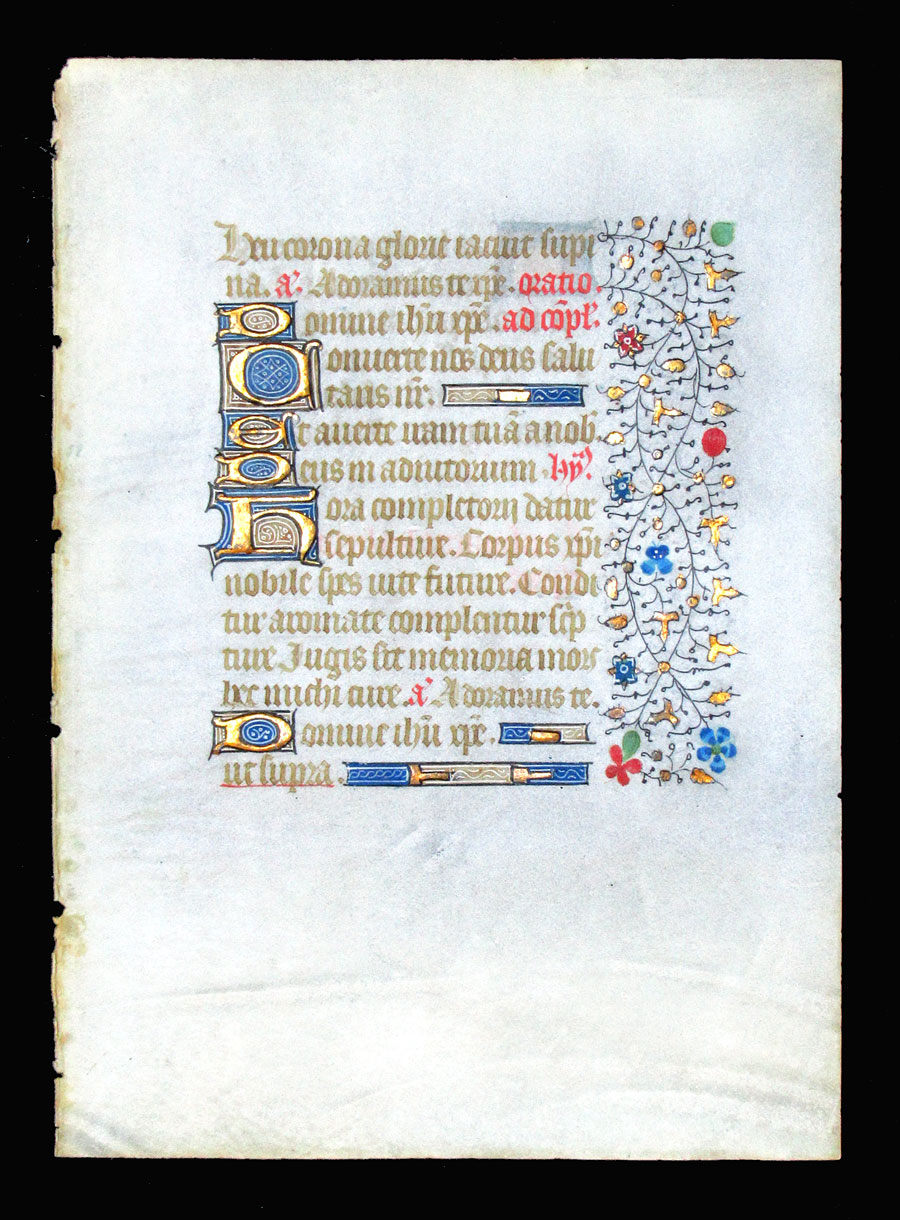 Heu corona glorie iacuit supi
na. a͛. Adoramus te xp̄e. oratio.
Domine ihū xp̄e. ad cōpl̄.
Conuerte nos deus salu
taris nr̄.
Et auerte iram tuā a nob̄.
Deus in adiutorium. hỹ
Hora completorij datur
sepulture. Corpus xp̄i
nobile spes uite future. Condi
tur aromate complentur sc̄p
ture Jugis sit memoria mors
hec michi cure. a͛ Adoramus te.
Domine ihū xp̄e.
ut supra.